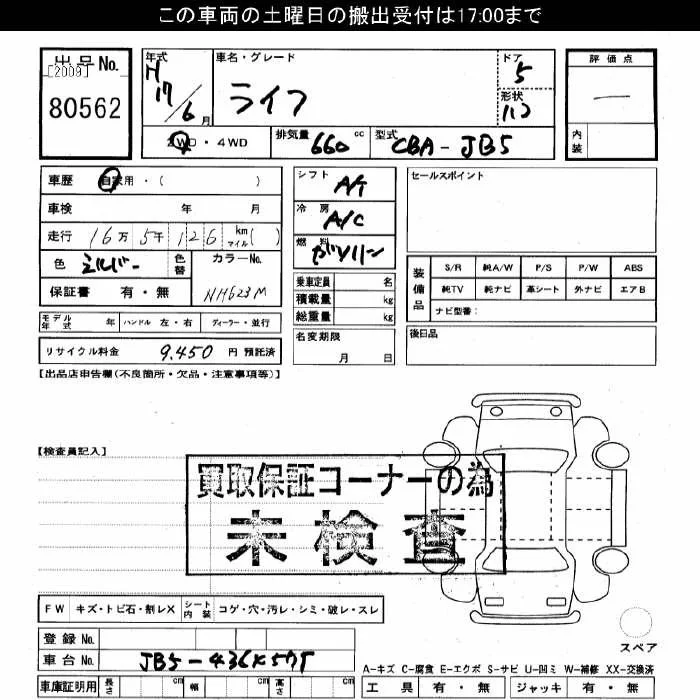 この車両の土曜日の搬出受付は17:00まで
出品No. [2009] 80562
年式 H 17/6月
車名・グレード ライフ
ドア 5
形状 ハコ
評価点 一
内装
2WD・4WD
排気量 660 cc
型式 CBA-JB5
車歴 自家用・( )
車検 年 月
走行 16万 5千 126 km マイル( )
色 シルバー 色替 カラーNo. NH623M
保証書 有・無
シフト A/T
冷房 A/C
燃料 ガソリン
乗車定員 名
積載量 kg
総重量 kg
セールスポイント
装備品
S/R 純A/W P/S P/W ABS
純TV 純ナビ 革シート 外ナビ エアB
ナビ型番:
モデル年式 年 ハンドル 左・右 ディーラー・並行
名変期限 月 日
後日品
リサイクル料金 9,450 円 預託済
【出品店申告欄(不良箇所・欠品・注意事項等)】
【検査員記入】
買取保証コーナーの為
未検査
FW キズ・トビ石・割レX シート内装 コゲ・穴・汚レ・シミ・破レ・スレ
スペア
登録No.
車台No. JB5-
車庫証明用 長さ cm 幅 cm 高さ cm
A-キズ C-腐食 E-エクボ S-サビ U-凹ミ W-補修 XX-交換済
工具 有・無 ジャッキ 有・無